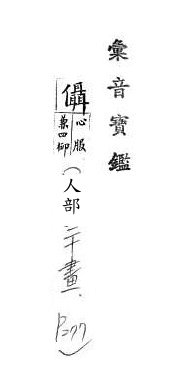 彙音寶鑑
㒤
心服
兼四柳
（人部二十畫. P277）